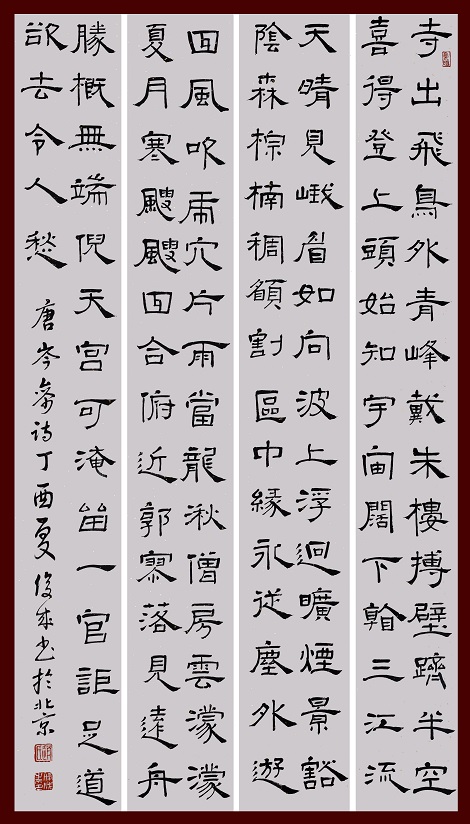 寺出飛鳥外青峰戴朱樓搏壁躋半空
喜得登上頭始知宇宙闊下看三江流
天晴見峨眉如向波上浮迥曠煙景豁
陰森棕楠稠願割區中緣永從塵外遊
回風吹虎穴片雨當龍湫僧房雲濛濛
夏月寒颼颼回合俯近郭寥落見遠舟
勝概無端倪天宮可淹留一官詎足道
欲去令人愁 唐岑參詩丁酉夏俊成书於北京